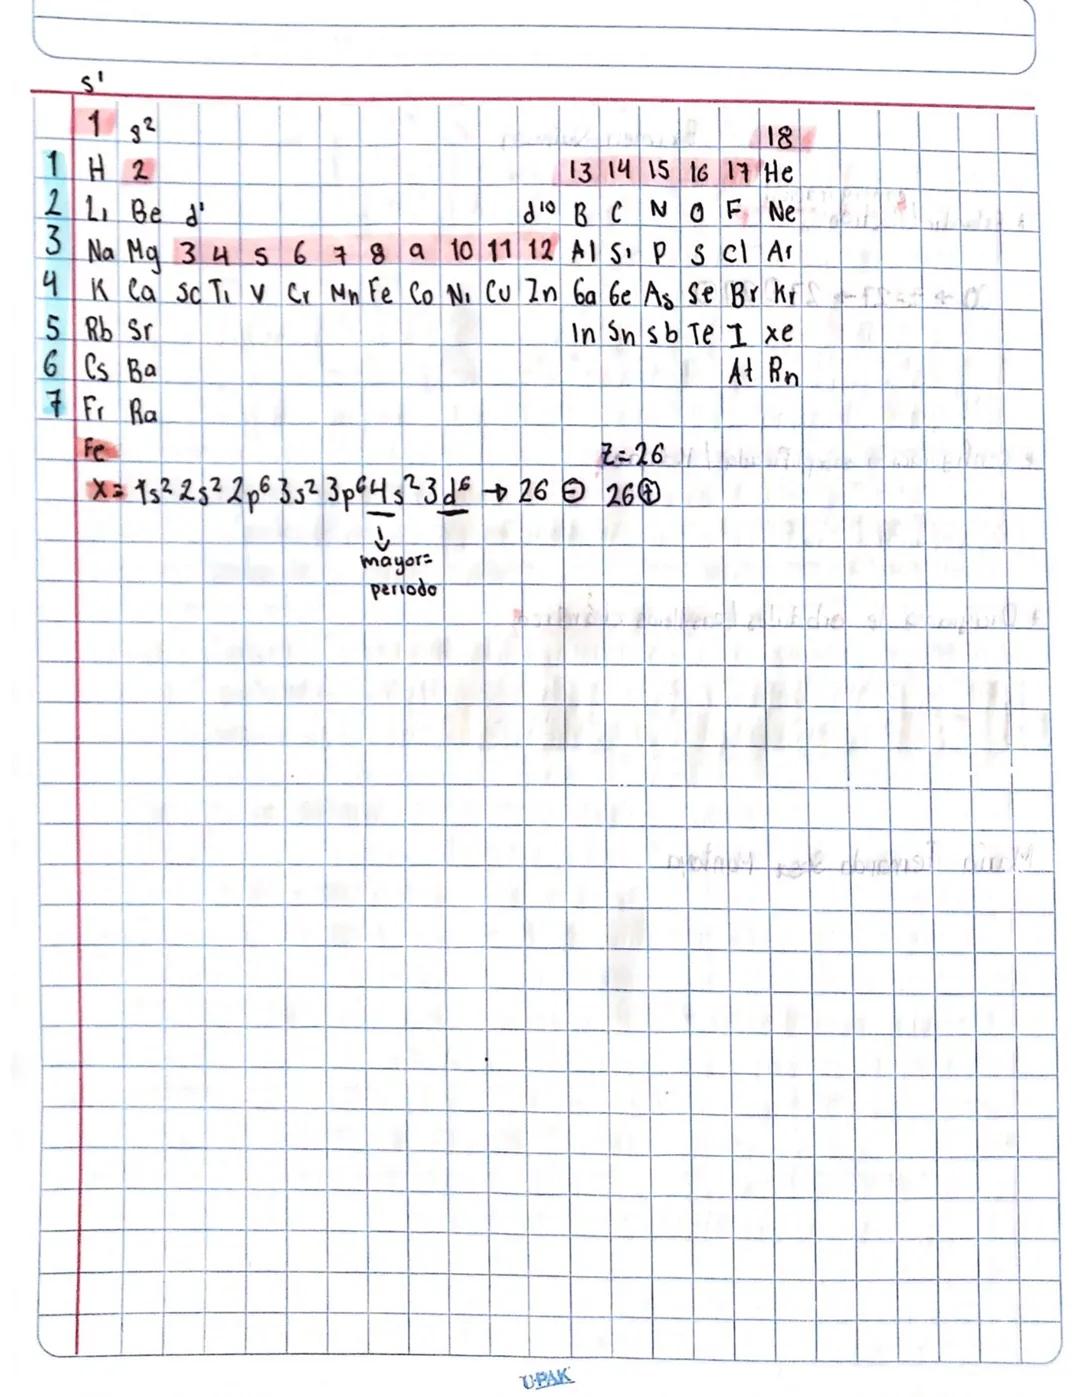 s¹
1 s² 18
1 H 2 13 14 15 16 17 He
2 Li Be d¹ d¹⁰ B C N O F Ne
3 Na Mg 3 4 5 6 7 8 9 10 11 12 Al Si P S Cl Ar
4 K Ca Sc Ti V Cr Mn Fe Co Ni Cu Zn Ga Ge As Se Br Kr
5 Rb Sr In Sn Sb Te I Xe
6 Cs Ba At Rn
7 Fr Ra
Fe Z=26
X= 1s² 2s² 2p⁶ 3s² 3p⁶ 4s² 3d⁶ → 26 ⊖ 26 ⊕
↓
mayor=
periodo
U·PAK